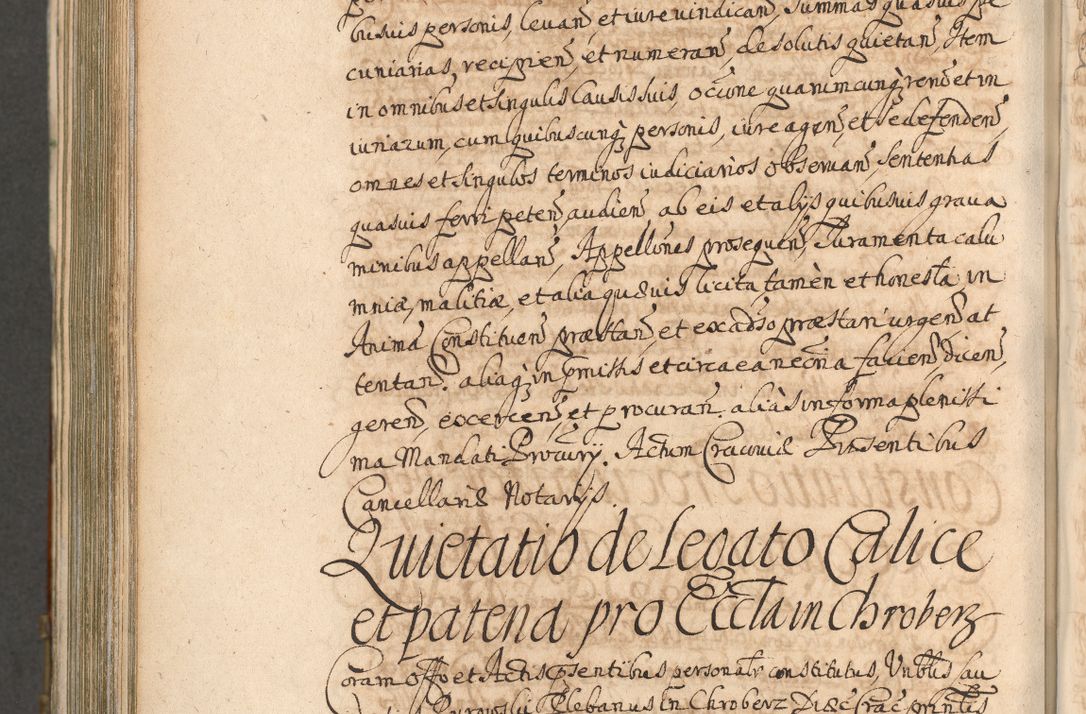 busuis personis, levan, et iure vindican, summas quasuis pe
cuniarias, recipien, et numeran, de solutis quietan, Item
in omnibus et singulis causis suis, occone quarumcunq rerum et in
iuriarum, cum quibuscunq personis, iure agen, et se defenden,
omnes et singulos terminos iudiciarios observan, sententias
quasuis ferri peten, audien, ab eis et alijs quibusuis grava
minibus appellan, Appellones prosequen, Iuramenta calu
mniæ, malitiæ, et alia quævis licita tamèn et honesta, in
Anima Constituen præstan, et ex adso præstari urgen, at
tentan. aliaq in pmissis et circa ea necna facien, dicen,
geren, exercen, et procuran. aliàs in forma plenissi
ma Mandati Procurij. Actum Cracoviæ Præsentibus
Cancellariæ Notarijs.
Quietatio de Legato Calice
et patena pro Eccla in Chroberz
Coram Offo et Actis psentibus personalr constitutus, Vnblis sau
Plebanus in Chroberz Diæc Crac